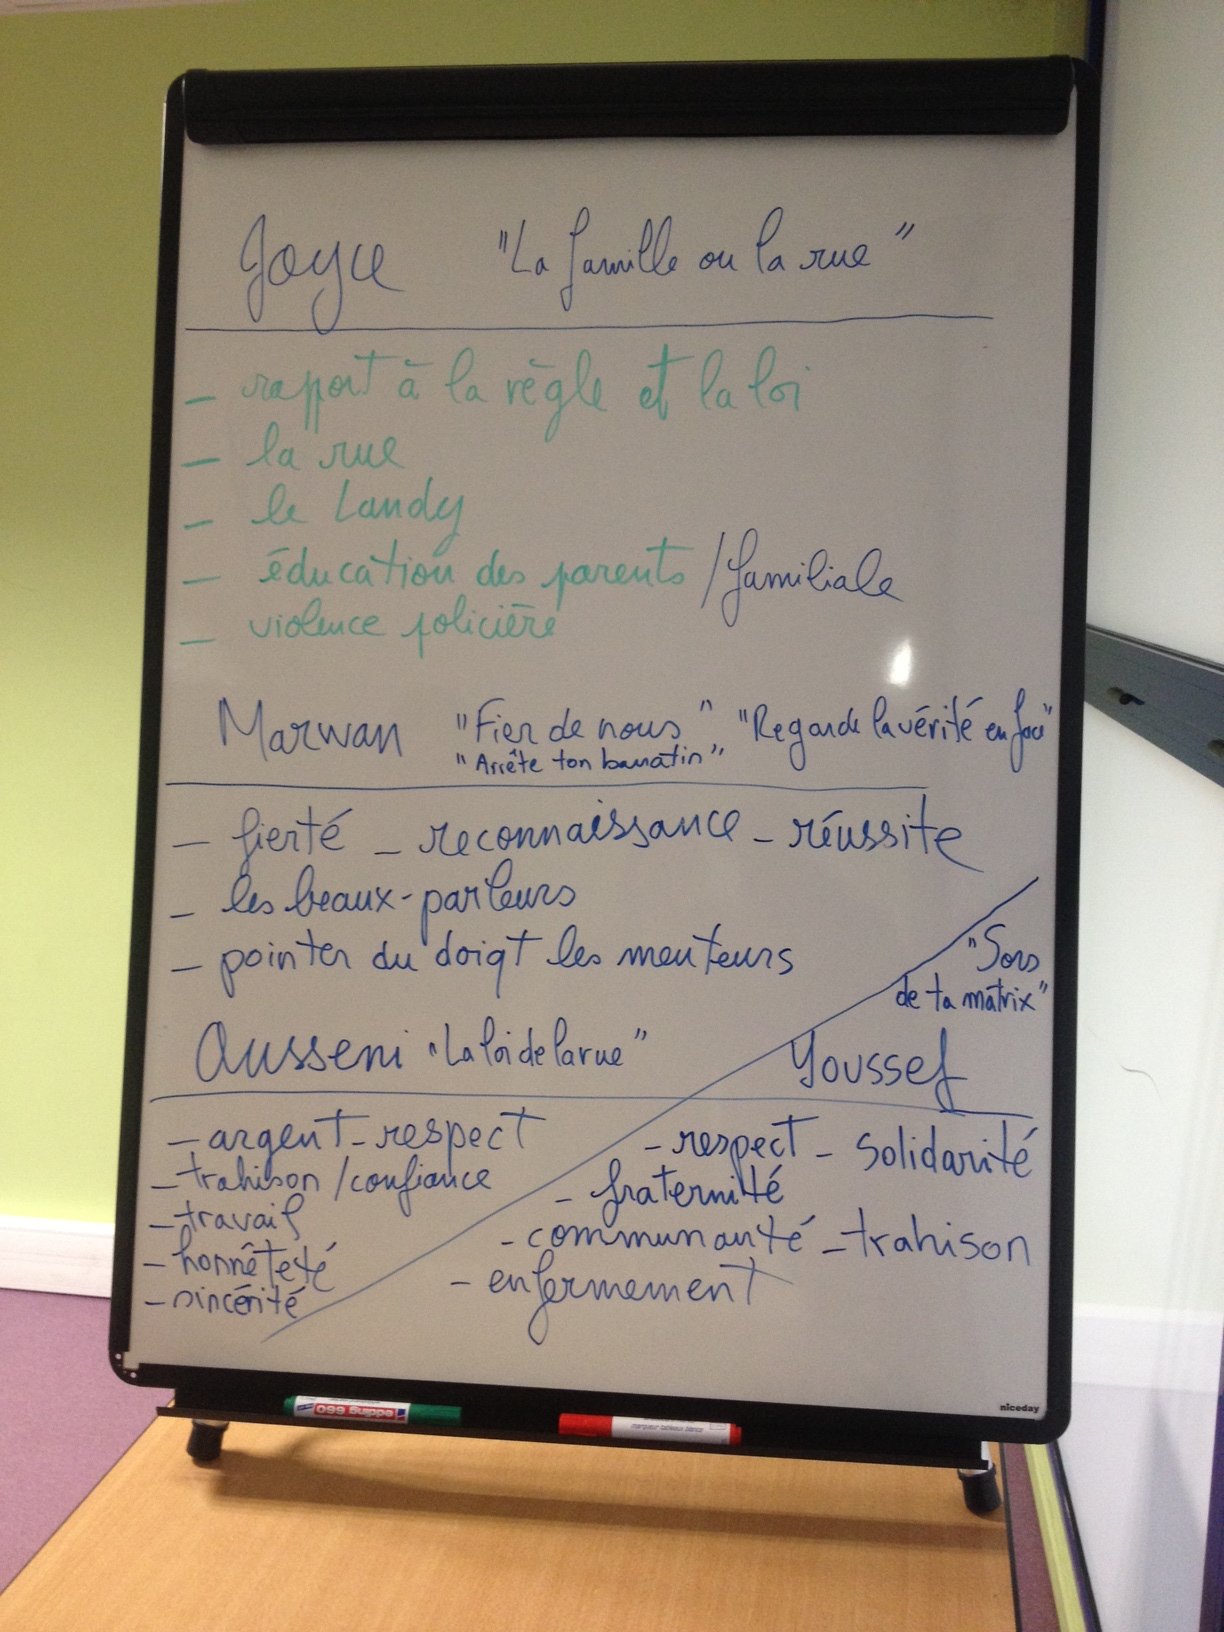 Joyce "La famille ou la rue"
— rapport à la règle et la loi
— la rue
— le Landy
— éducation des parents / familiale
— violence policière
Marwan "Fier de nous" "Regarde la vérité en face"
"Arrête ton baratin"
— fierté – reconnaissance – réussite
— les beaux-parleurs
— pointer du doigt les menteurs
"Sors
de ta matrix"
Ousseni "La loi de la rue"
Youssef
— argent – respect
— trahison / confiance
— travail
— honnêteté
— sincérité
— respect – solidarité
— fraternité
— communauté – trahison
— enfermement
niceday
edding 660
marqueur tableaux blancs